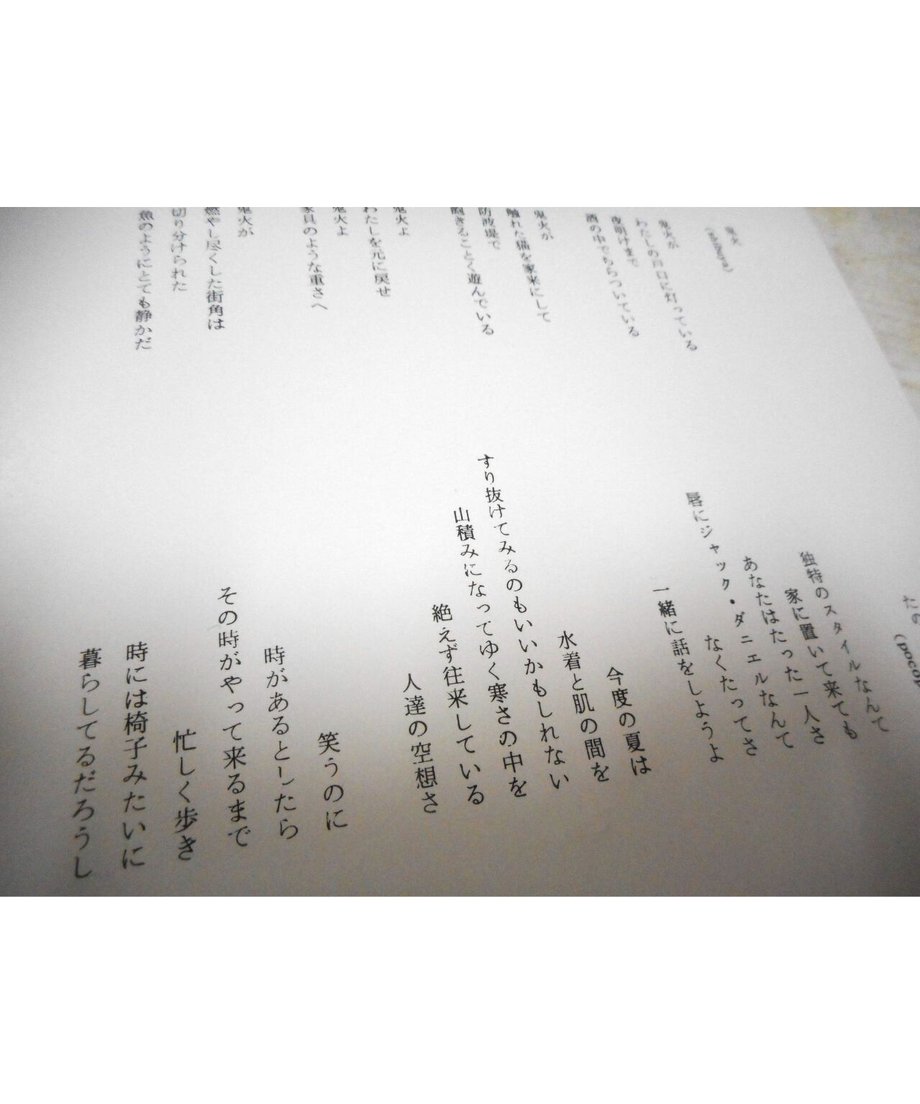 鬼火
鬼火が
わたしの戸口に灯っている
夜明けまで
酒の中でちらついている
鬼火が
触れた猫を家来にして
防波堤で
飽きることなく遊んでいる
鬼火よ
わたしを元に戻せ
鬼火よ
家具のような重さへ
鬼火が
燃やし尽くした街角は
切り分けられた
魚のようにとても静かだ
たの
(pocop
独特のスタイルなんて
家に置いて来ても
あなたはたった一人さ
唇にジャック・ダニエルなんて
なくたってさ
一緒に話をしようよ
今度の夏は
水着と肌の間を
すり抜けてみるのもいいかもしれない
山積みになってゆく寒さの中を
絶えず往来している
人達の空想さ
笑うのに
時があるとしたら
その時がやって来るまで
忙しく歩き
時には椅子みたいに
暮らしてるだろうし